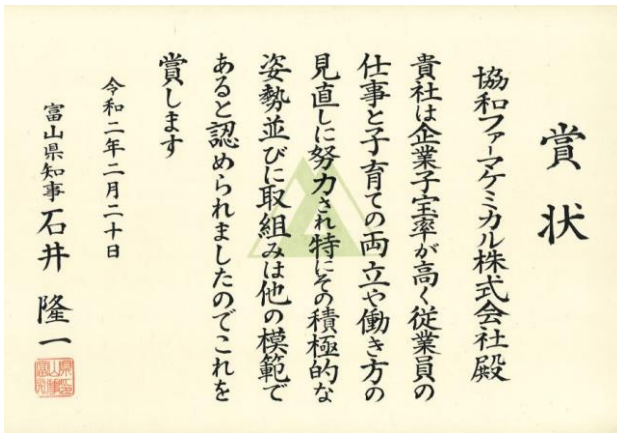 賞状
協和ファーマケミカル株式会社殿
貴社は企業子宝率が高く従業員の
仕事と子育ての両立や働き方の
見直しに努力され特にその積極的な
姿勢並びに取組みは他の模範で
あると認められましたのでこれを
賞します
令和二年二月二十日
富山県知事 石井隆一